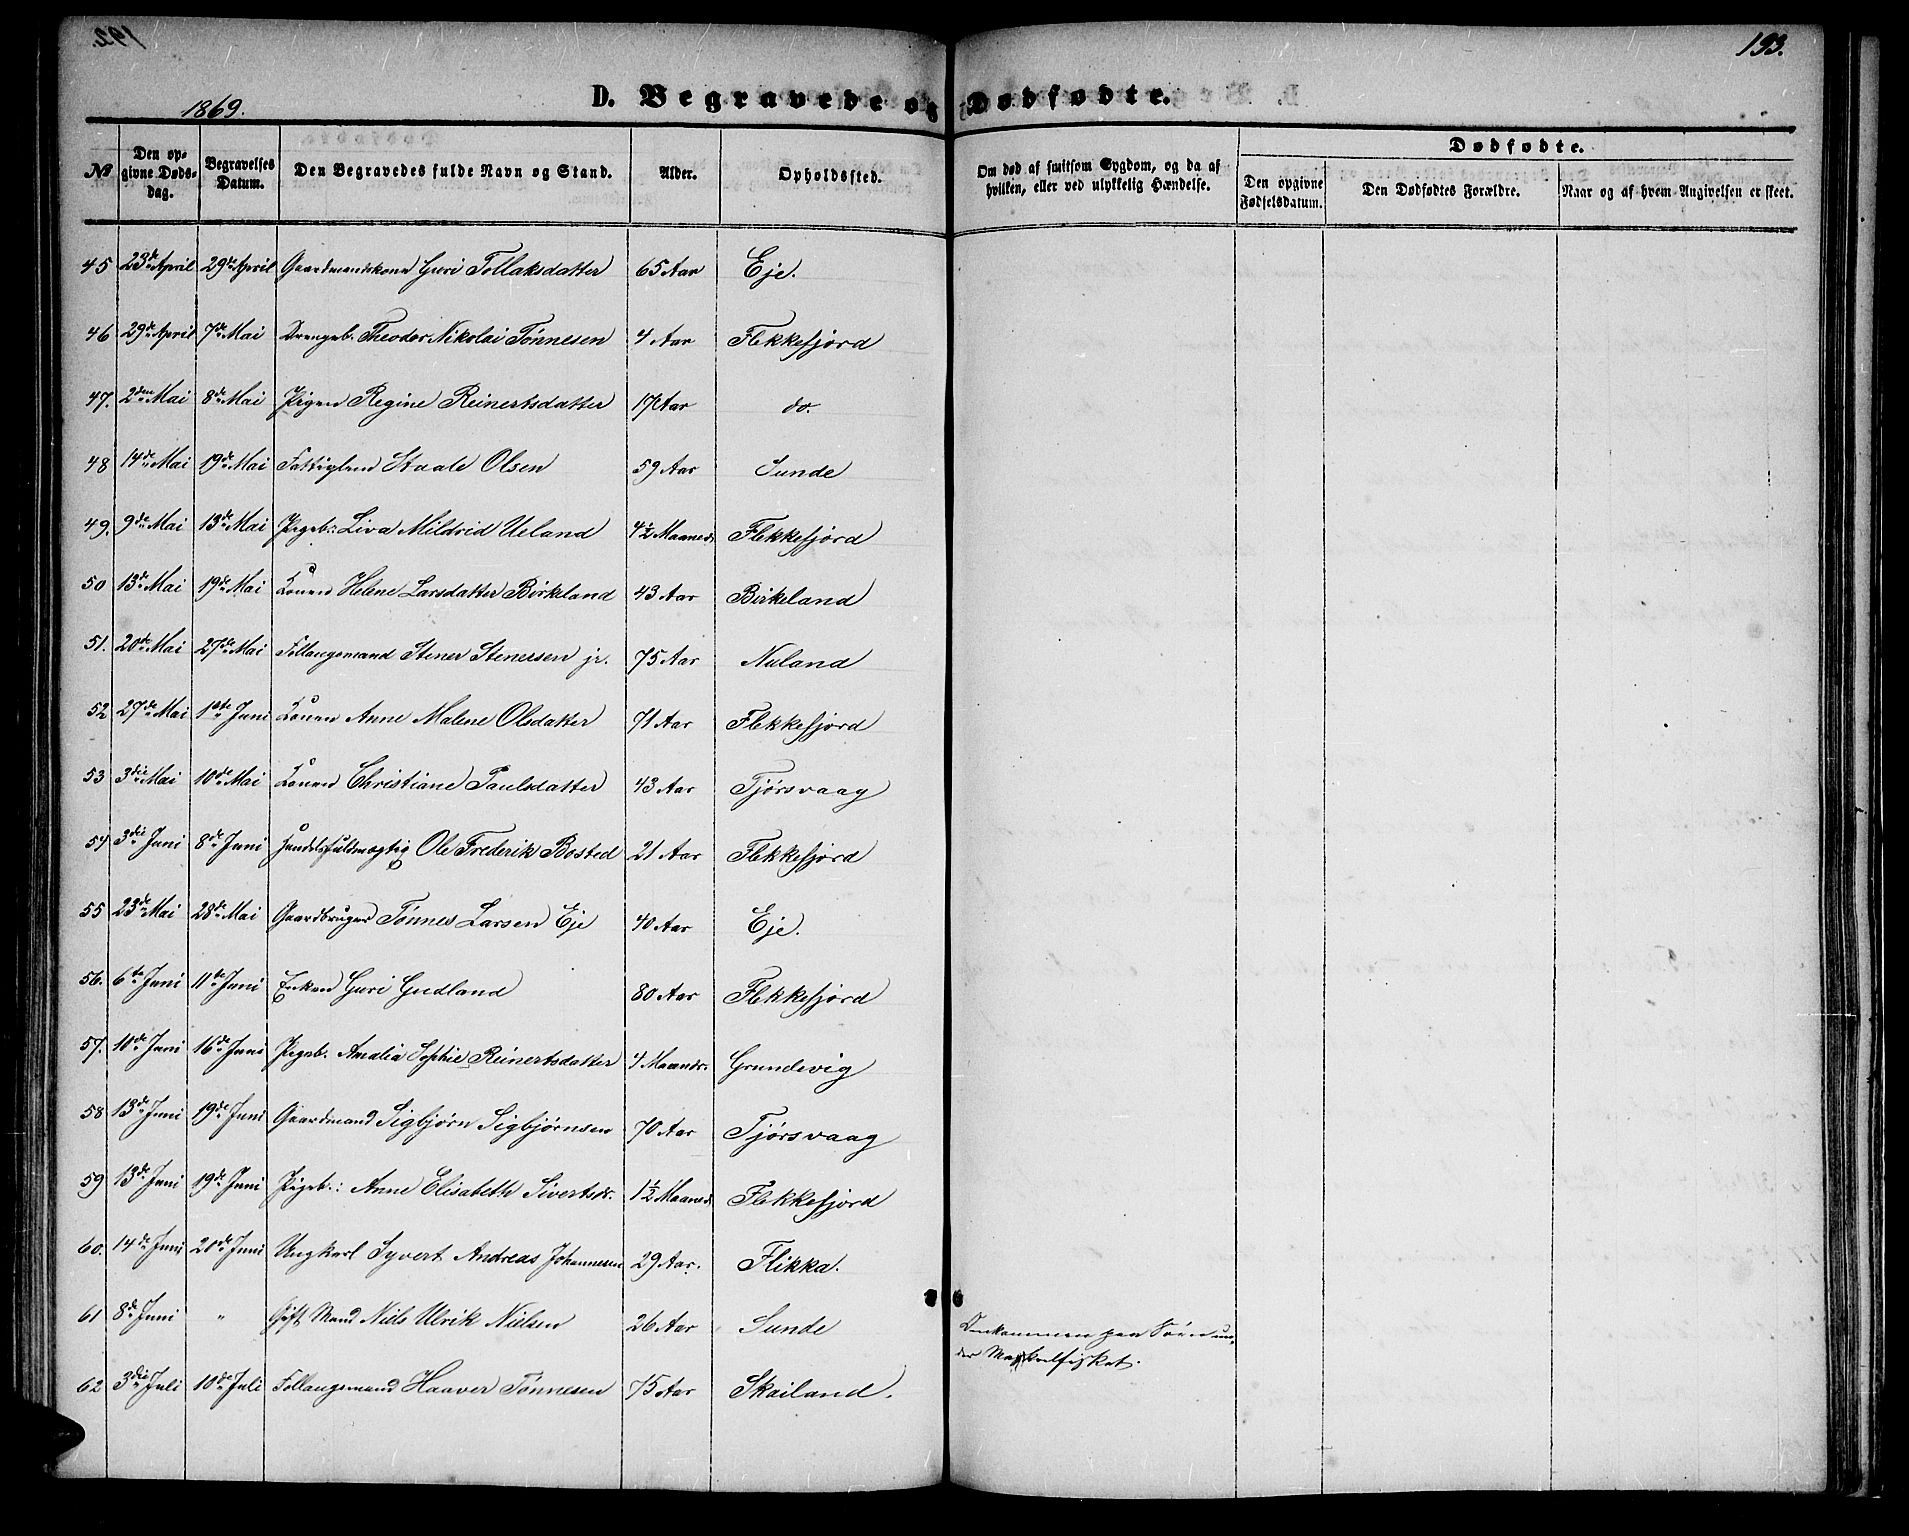 193.
1869.
D. Begravede og Dødfødte.
№ | Den op-givne Døds-dag. | Begravelses Datum. | Den Begravedes fulde Navn og Stand. | Alder. | Opholdssted. | Om død af smitsom Sygdom, og da af hvilken, eller ved ulykkelig Hændelse. | Dødfødte. | Den opgivne Fødselsdatum. | Den Dødfødtes Forældre. | Naar og af hvem Angivelsen er skeet.
45 | 23de April | 29de April | Gaardmandskone Guri Tollaksdatter | 65 Aar | Eje.
46 | 29de April | 7de Mai | Drengeb. Theodor Nikolai Tønnesen | 4 Aar | Flekkefjord
47. | 2den Mai | 8de Mai | Pigen Regine Reinertsdatter | 17 Aar | do.
48 | 14de Mai | 19de Mai | Fattiglem Staale Olsen | 59 Aar | Sunde
49. | 9de Mai | 13de Mai | Pigeb: Liva Mildrid Ueland | 4½ Maaned. | Flekkefjord
50 | 13de Mai | 19de Mai | Konen Helene Larsdatter Birkeland | 43 Aar | Birkeland
51. | 20de Mai | 27de Mai | Follaugsmand Stener Stenersen jr. | 75 Aar | Nuland
52 | 27de Mai | 1ste Juni | Konen Anne Malene Olsdatter | 71 Aar | Flekkefjord
53 | 3die Mai | 10de Mai | Konen Christiane Paulsdatter | 43 Aar | Tjørsvaag
54 | 3die Juni | 8de Juni | Handelsfuldmægtig Ole Frederik Bosted | 21 Aar | Flekkefjord
55 | 23de Mai | 28de Mai | Gaardbruger Tønnes Larsen Eje | 40 Aar | Eje.
56. | 6te Juni | 11te Juni | Enken Guri Gudland | 80 Aar | Flekkefjord
57. | 10de Juni | 16de Juni | Pigeb. Amalia Sophie Reinertsdatter | 4 Maander. | Grundevig
58 | 13de Juni | 19de Juni | Gaardmand Sigbjørn Sigbjørnsen | 70 Aar | Tjørsvaag
59 | 13de Juni | 19de Juni | Pigeb.: Anne Elisabeth Sivertsdr. | 1½ Maaned. | Flekkefjord
60. | 14de Juni | 20de Juni | Ungkarl Syvert Andreas Johannesen | 29 Aar. | Flikka.
61 | 8de Juni | " | Gift Mand Niels Ulrik Nielsen | 26 Aar | Sunde | Omkommen paa Søen un-der Makrelfisket.
62 | 3die Juli | 10de Juli | Follaugsmand Haaver Tønnesen | 75 Aar | Skailand.